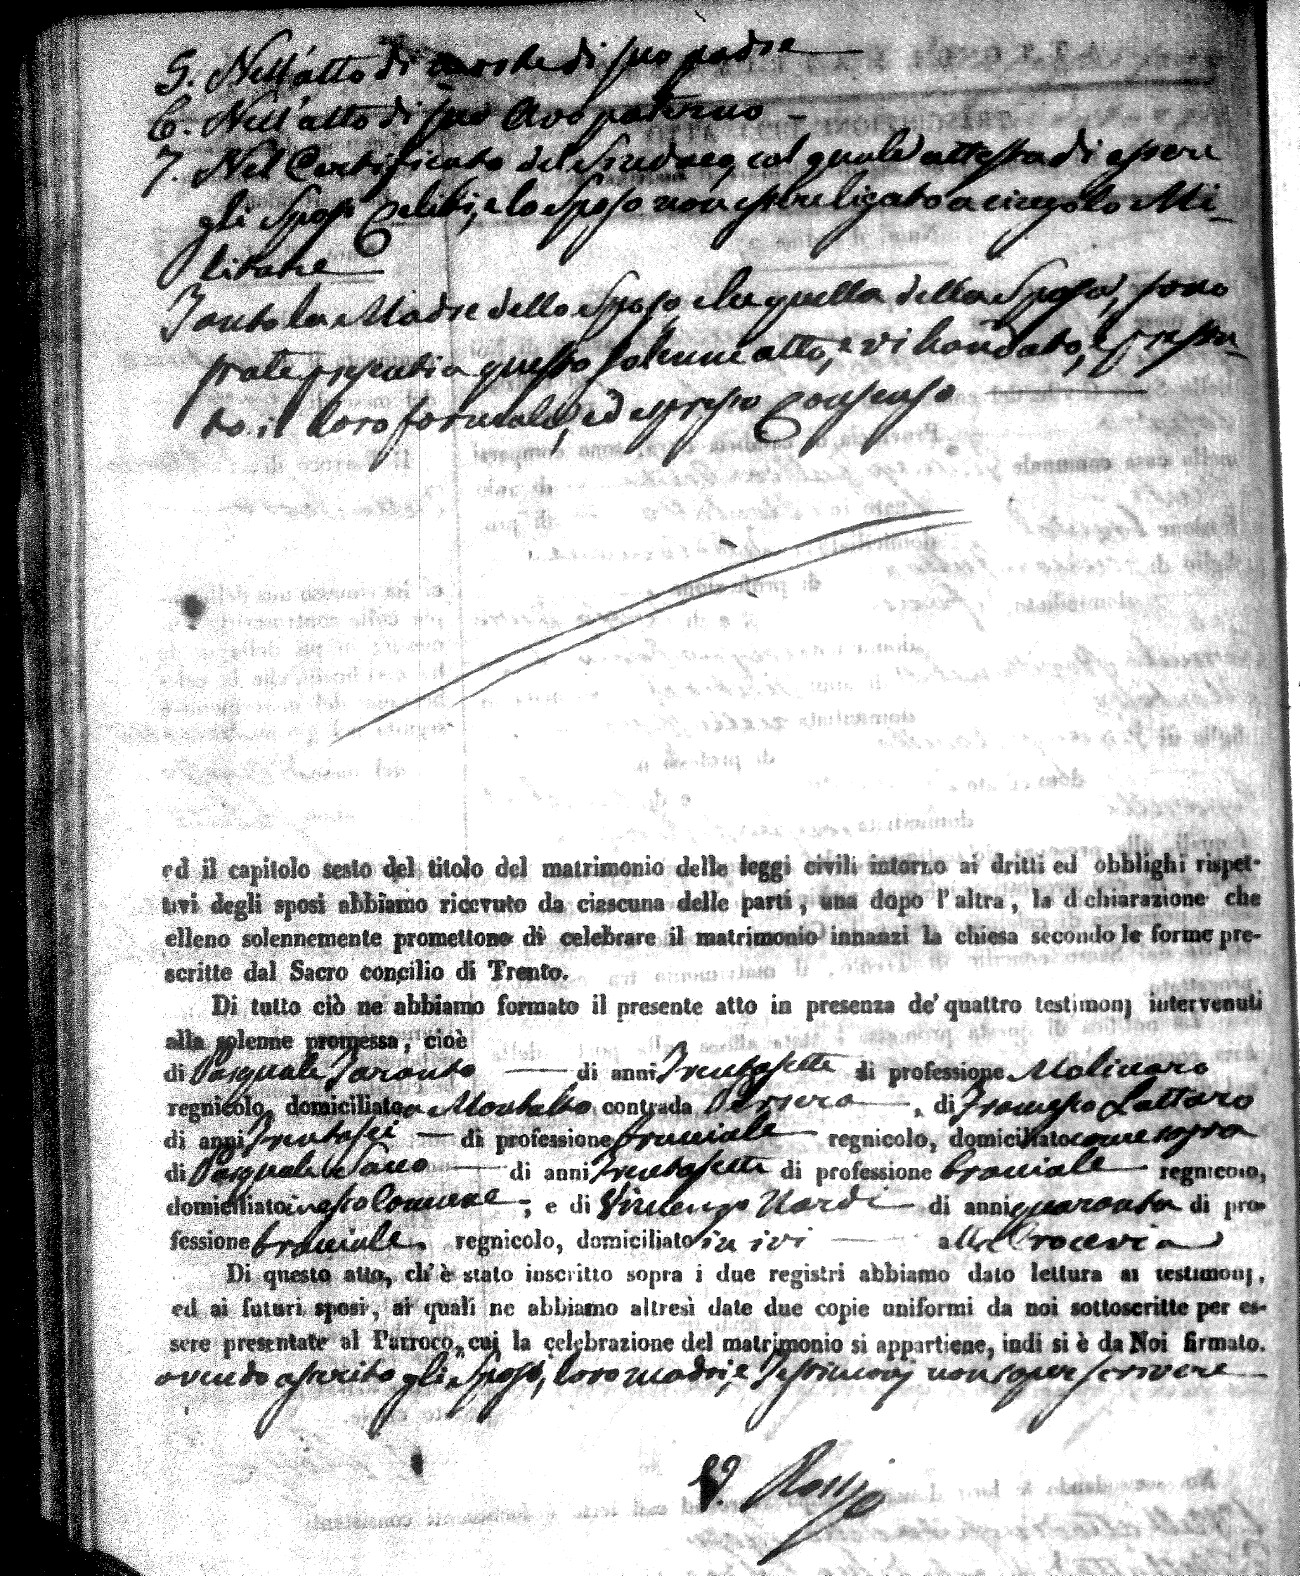 5. Nell'atto di morte di suo padre
6. Nell'atto di suo Avo paterno
7. Nel Certificato del Sindaco, col quale attesta di essere
gli Sposi Celibi, e lo Sposo non esser ligato a cingolo Mi-
litare
Tanto la Madre dello Sposo, che quella della Sposa, sono
state presenti a questo solenne atto, e vi han dato, e presta-
to il loro formale, ed espresso Consenso
ed il capitolo sesto del titolo del matrimonio delle leggi civili intorno ai dritti ed obblighi rispet-
tivi degli sposi abbiamo ricevuto da ciascuna delle parti, una dopo l'altra, la dichiarazione che
elleno solennemente promettono di celebrare il matrimonio innanzi la chiesa secondo le forme pre-
scritte dal Sacro concilio di Trento.
Di tutto ciò ne abbiamo formato il presente atto in presenza de' quattro testimonj intervenuti
alla solenne promessa, cioè
di Pasquale Taranto di anni Trentasette di professione Molinaro
regnicolo, domiciliato a Montalto contrada , di Francesco Lattaro
di anni Trentasei di professione bracciale regnicolo, domiciliato come sopra
di Pasquale Sano di anni Trentasette di professione bracciale regnicolo,
domiciliato in esto Comune ; e di Vincenzo Nardi di anni quaranta di pro-
fessione bracciale, regnicolo, domiciliato in ivi alla Crocevia
Di questo atto, ch'è stato inscritto sopra i due registri abbiamo dato lettura ai testimonj,
ed ai futuri sposi, ai quali ne abbiamo altresì date due copie uniformi da noi sottoscritte per es-
sere presentate al Parroco, cui la celebrazione del matrimonio si appartiene, indi si è da Noi firmato.
avendo asserito gli Sposi, loro madri, e Testimonj non saper scrivere
V. Rossi